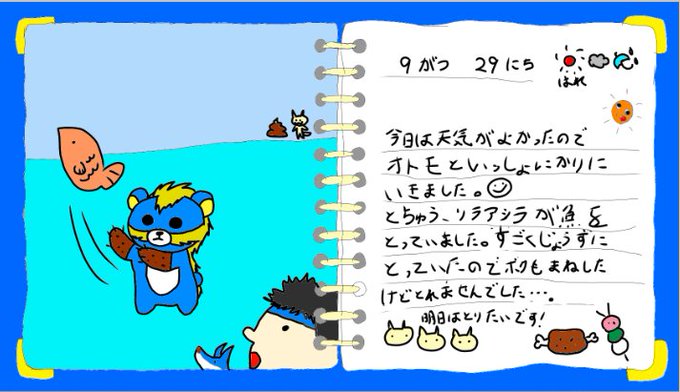 9がつ 29にち
はれ
今日は天気がよかったので
オトモといっしょにかりに
いきました。
とちゅう、ソラアシラが魚を
とっていました。すごくじょうずに
とっていたのでボクもまねした
けどとれませんでした…。
明日はとりたいです!